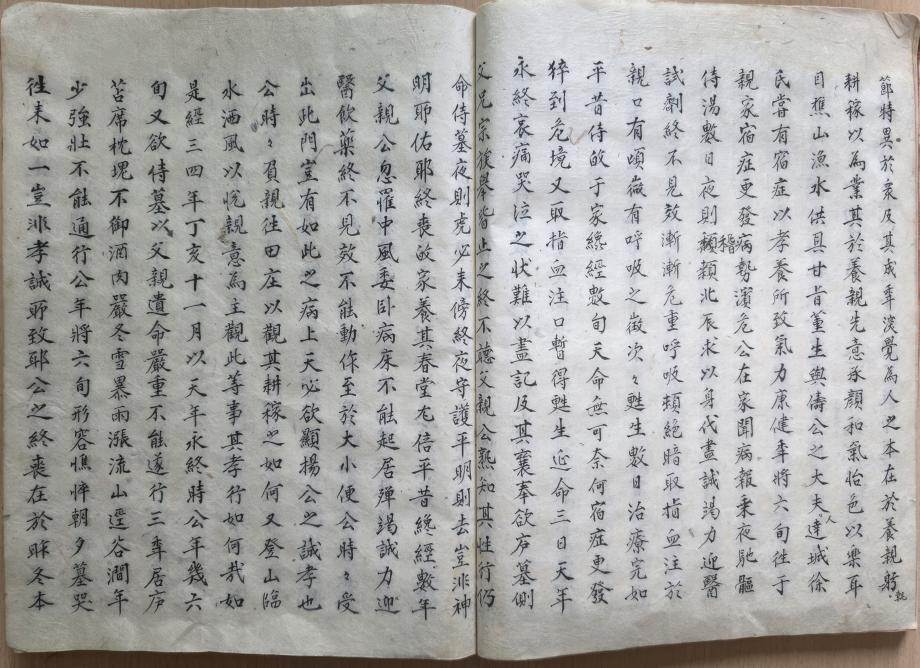 節特異於衆及其成年深覺爲人之本在於養親躬執
耕稼以為業其於養親先意承顔和氣怡色以樂耳
目樵山漁水供具甘旨董生與儔公之大夫人達城徐
氏嘗有宿症以孝養所致氣力康健年將六旬徃于
親家宿症更發病勢濱危公在家聞病報乘夜馳驅
侍湯數日夜則稽顙北辰求以身代盡誠竭力迎醫
試劑終不見效漸漸危重呼吸頻絶暗取指血注於
親口有頃微有呼吸之微次々甦生數日治療完如
平昔侍皈于家纔經數旬天命無可奈何宿症更發
猝到危境又取指血注口暫得甦生延命三日天年
永終哀痛哭泣之状難以盡記及其襄奉欲庐墓側
父兄宗後舉皆止之終不聽父親公熟知其性行仍
命侍墓夜則虎必来傍終夜守護平明則去豈非神
明所佑耶終喪皈家養其春堂尤倍平昔纔經數年
父親公忽罹中風委卧病床不能起居殫竭誠力迎
醫飲藥終不見效不能動作至於大小便公時々受
出此門豈有如此之病上天必欲顯揚公之誠孝也
公時々負親徃田庄以觀其耕稼之如何又登山臨
水洒風以悦親意為主觀此等事其孝行如何哉如
是經三四年丁亥十一月以天年永終時公年幾六
旬又欲侍墓以父親遺命嚴重不能遂行三年居庐
苫席枕塊不御酒肉嚴冬雪暴雨漲流山逕谷澗年
少強壯不能通行公年將六旬形容憔悴朝夕墓哭
徃来如一豈非孝誠所致耶公之終喪在於昨冬本